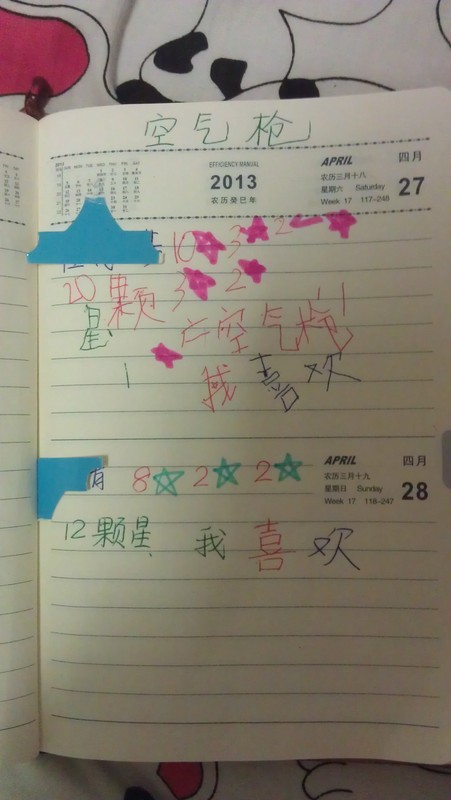 空气枪
EFFICIENCY MANUAL
2013
农历癸巳年
APRIL 四月
农历三月十八
星期六 Saturday 27
Week 17 117-248
10 3 2
20颗 3 2
星 空气枪
1 我喜欢
APRIL 四月
农历三月十九
星期日 Sunday 28
Week 17 118-247
有 8 2 2
12颗星 我喜欢